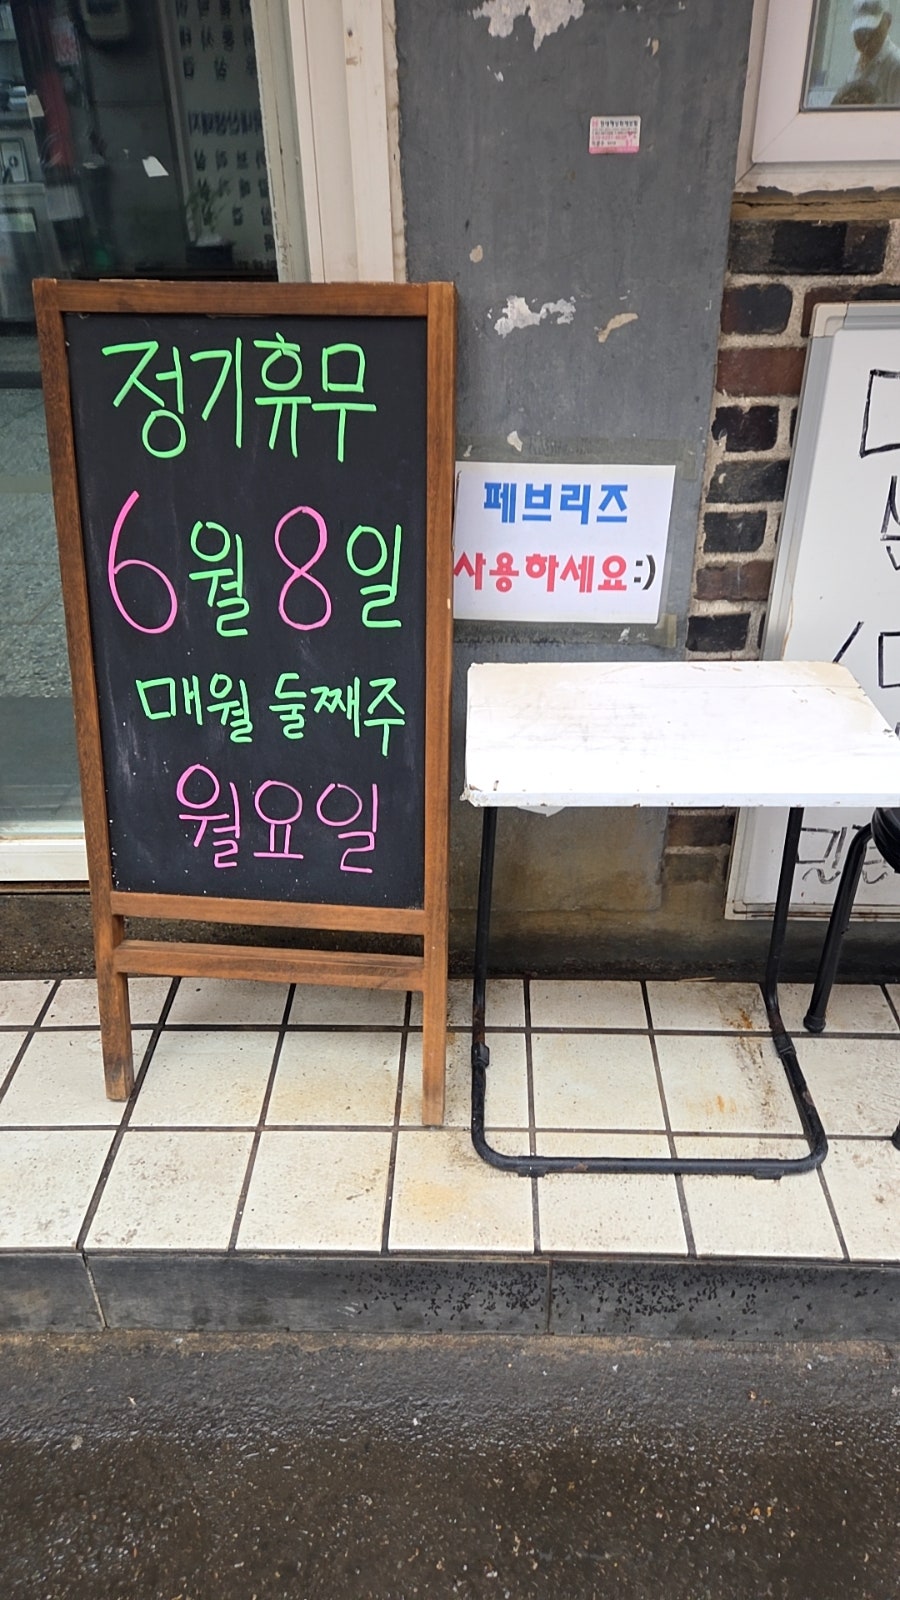 정기휴무
6월 8일
매월 둘째주
월요일
페브리즈
사용하세요:)